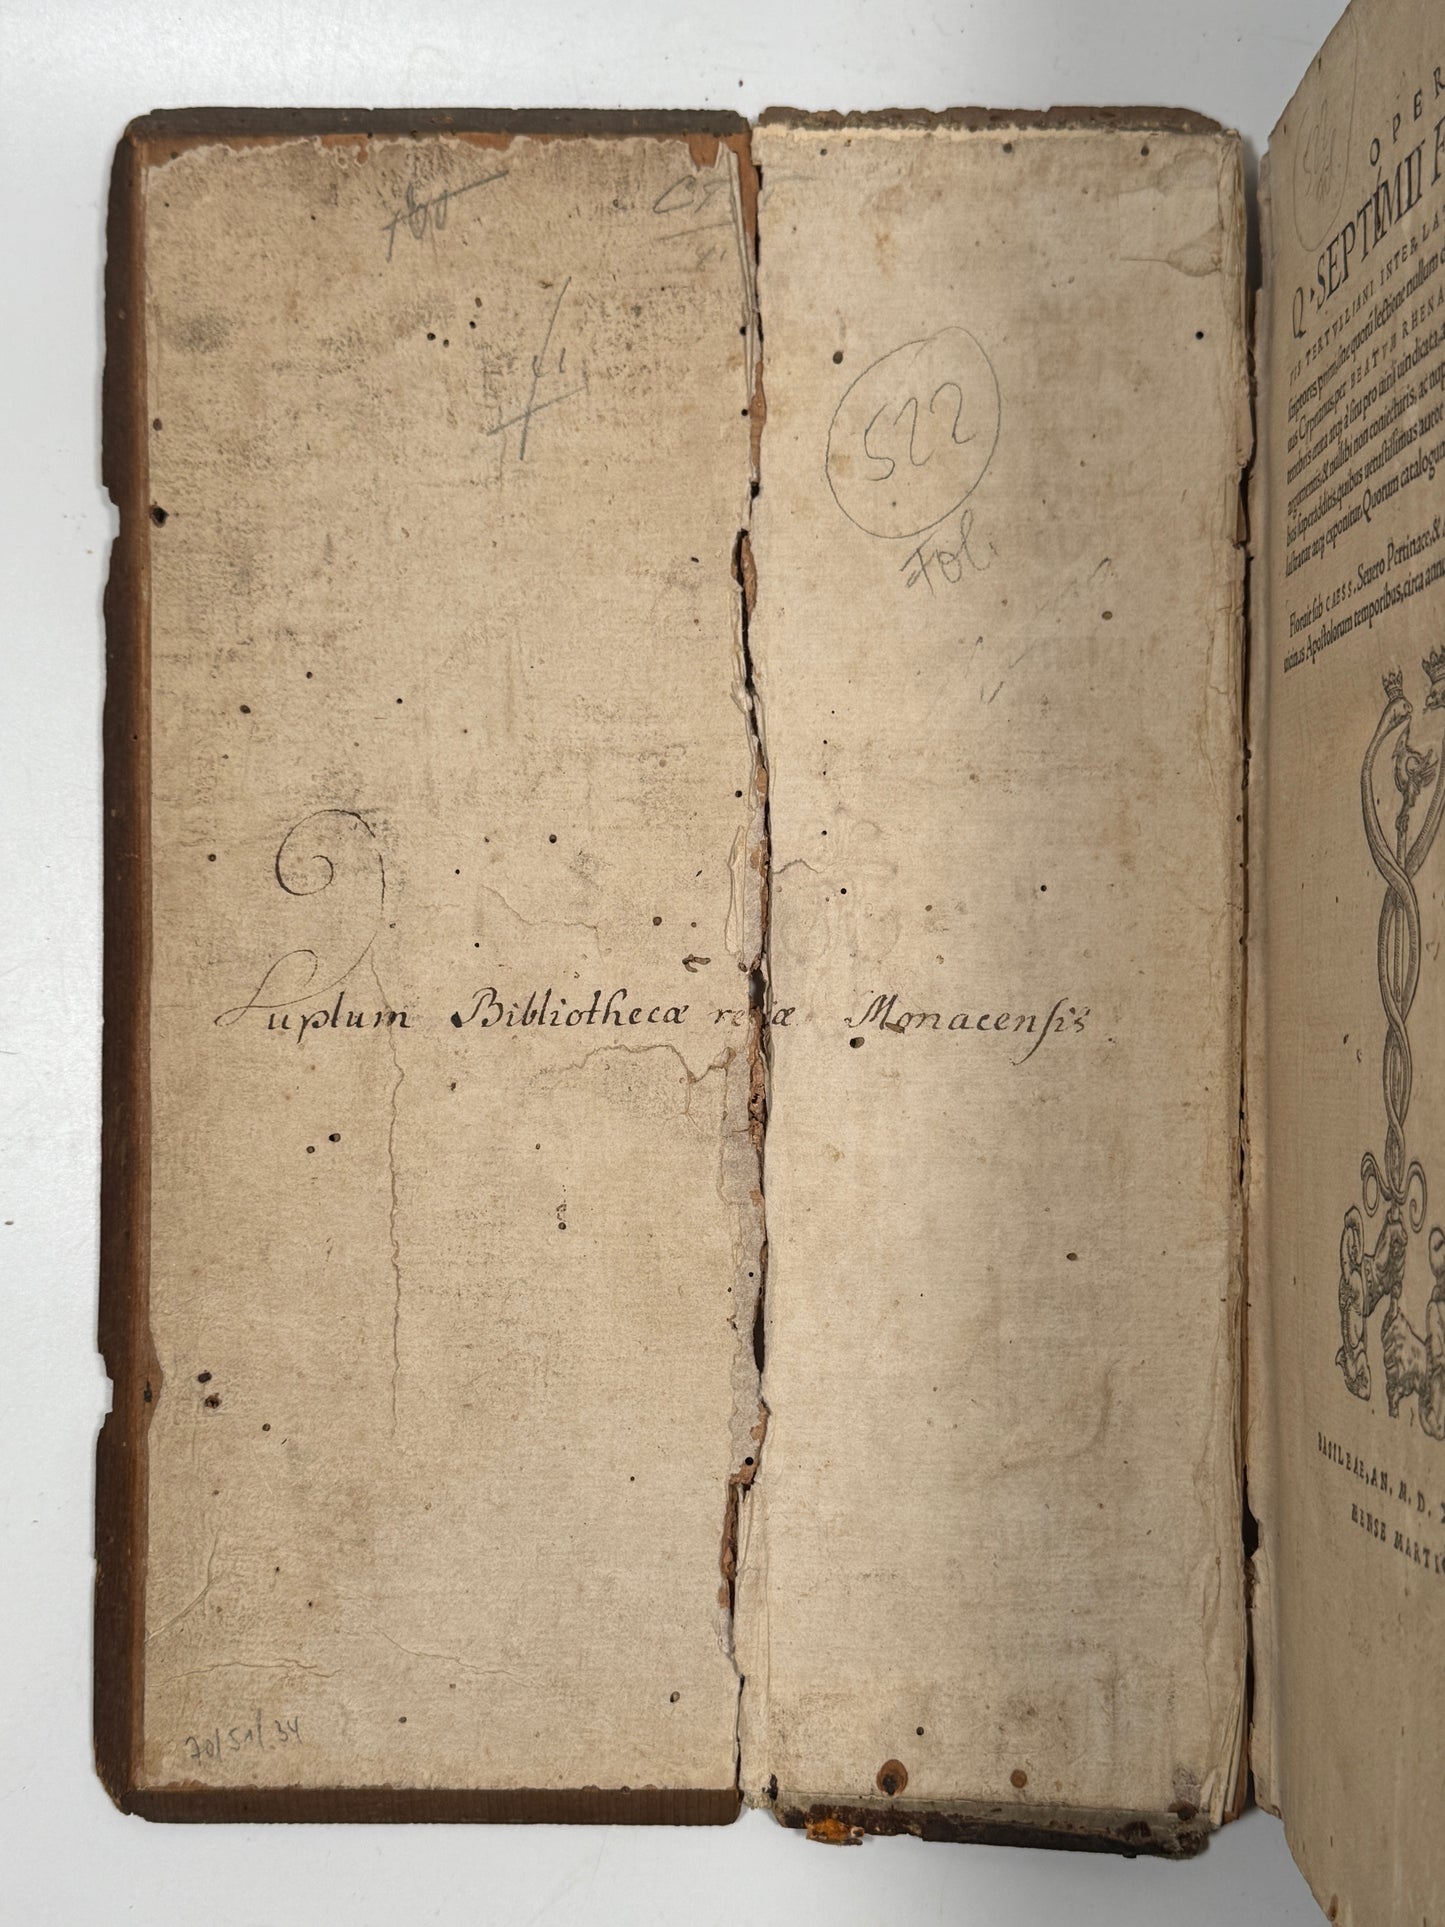 522
Fol.
Duplum Bibliothecæ regiæ Monacensis
70/51/.34
OPER
Q. SEPTIMII F
IIS TERTVLLIANI INTER LA
scriptoris primi, sine quorũ lectione nullum
nus Cyprianus, per BEATVM RHENA
tenebris eruta atq; à situ pro uirili uindicata,
argumentis, & nullibi non coniecturis, ac nup
bus superadditis, quibus uetustissimus autor
lustratur atq; exponitur. Quorum catalogum
Floruit sub CAESS. Seuero Pertinace, &
uicinus Apostolorum temporibus, circa annu
BASILEAE, AN. M. D.
MENSE MARTIO